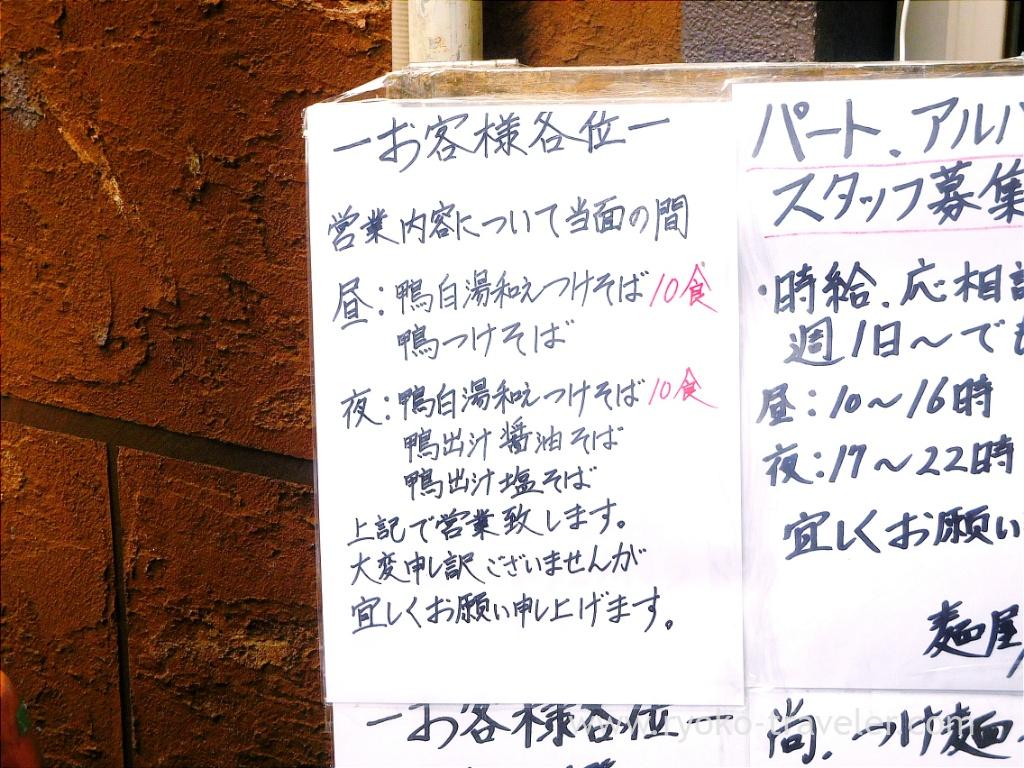 ーお客様各位ー
営業内容について当面の間
昼:鴨白湯和えつけそば10食
鴨つけそば
夜:鴨白湯和えつけそば10食
鴨出汁醤油そば
鴨出汁塩そば
上記で営業致します。
大変申し訳ございませんが
宜しくお願い申し上げます。
ーお客様各位
パート、アルバ
スタッフ募集
・時給、応相談
週1日〜でも
昼:10〜16時
夜:17〜22時
宜しくお願い
麺屋
尚、つけ麺
www.ryoko-traveler.com